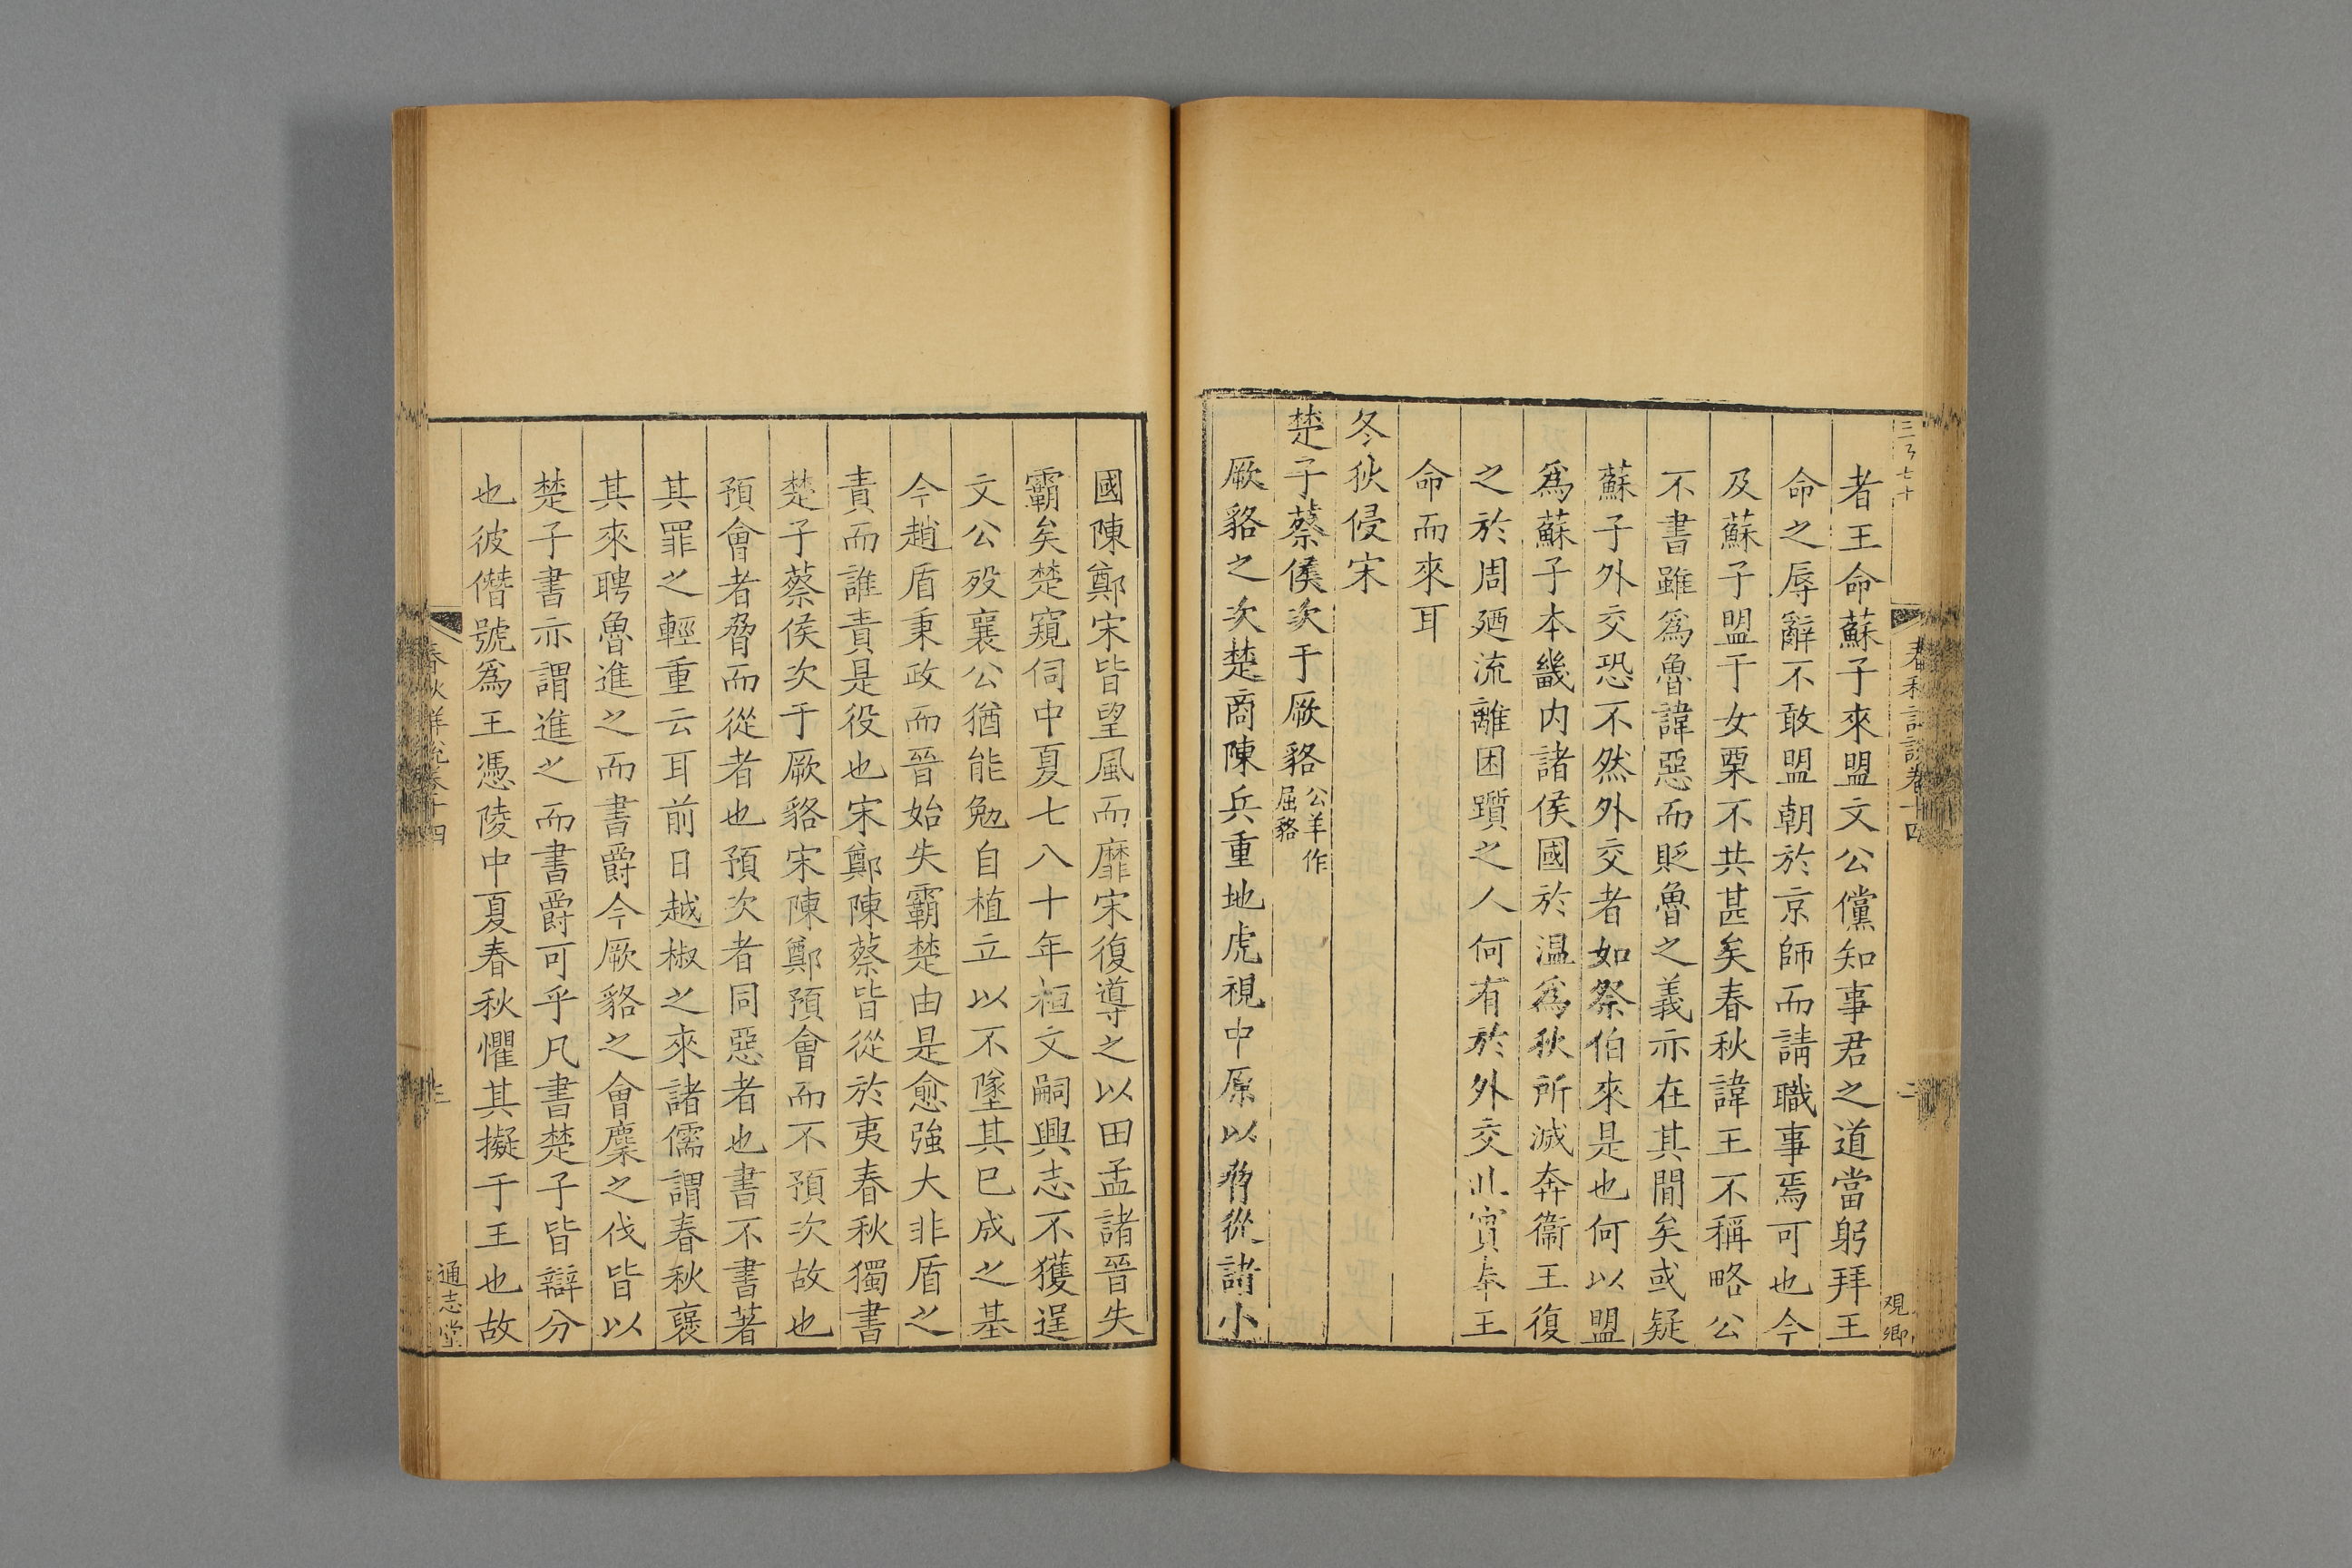 者王命蘇子來盟文公儻知事君之道當躬拜王
命之辱辭不敢盟朝於京師而請職事焉可也今
及蘇子盟于女栗不共甚矣春秋諱王不稱略公
不書雖爲魯諱惡而貶魯之義亦在其閒矣或疑
蘇子外交恐不然外交者如祭伯來是也何以盟
爲蘇子本畿内諸侯國於温爲狄所滅奔衞王復
之於周廼流離困躓之人何有於外交此實奉王
命而來耳
冬狄侵宋
楚子蔡侯次于厥貉公羊作屈貉
厥貉之次楚商陳兵重地虎視中原以脅從諸小
國陳鄭宋皆望風而靡宋復導之以田孟諸晉失
霸矣楚窺伺中夏七八十年桓文嗣興志不獲逞
文公殁襄公猶能勉自植立以不墜其已成之基
今趙盾秉政而晉始失霸楚由是愈強大非盾之
責而誰責是役也宋鄭陳蔡皆從於夷春秋獨書
楚子蔡侯次于厥貉宋陳鄭預會而不預次故也
預會者脅而從者也預次者同惡者也書不書著
其罪之輕重云耳前日越椒之來諸儒謂春秋襃
其來聘魯進之而書爵今厥貉之會麇之伐皆以
楚子書亦謂進之而書爵可乎凡書楚子皆辯分
也彼僭號爲王憑陵中夏春秋懼其擬于王也故
春秋詳說卷十四
通志堂